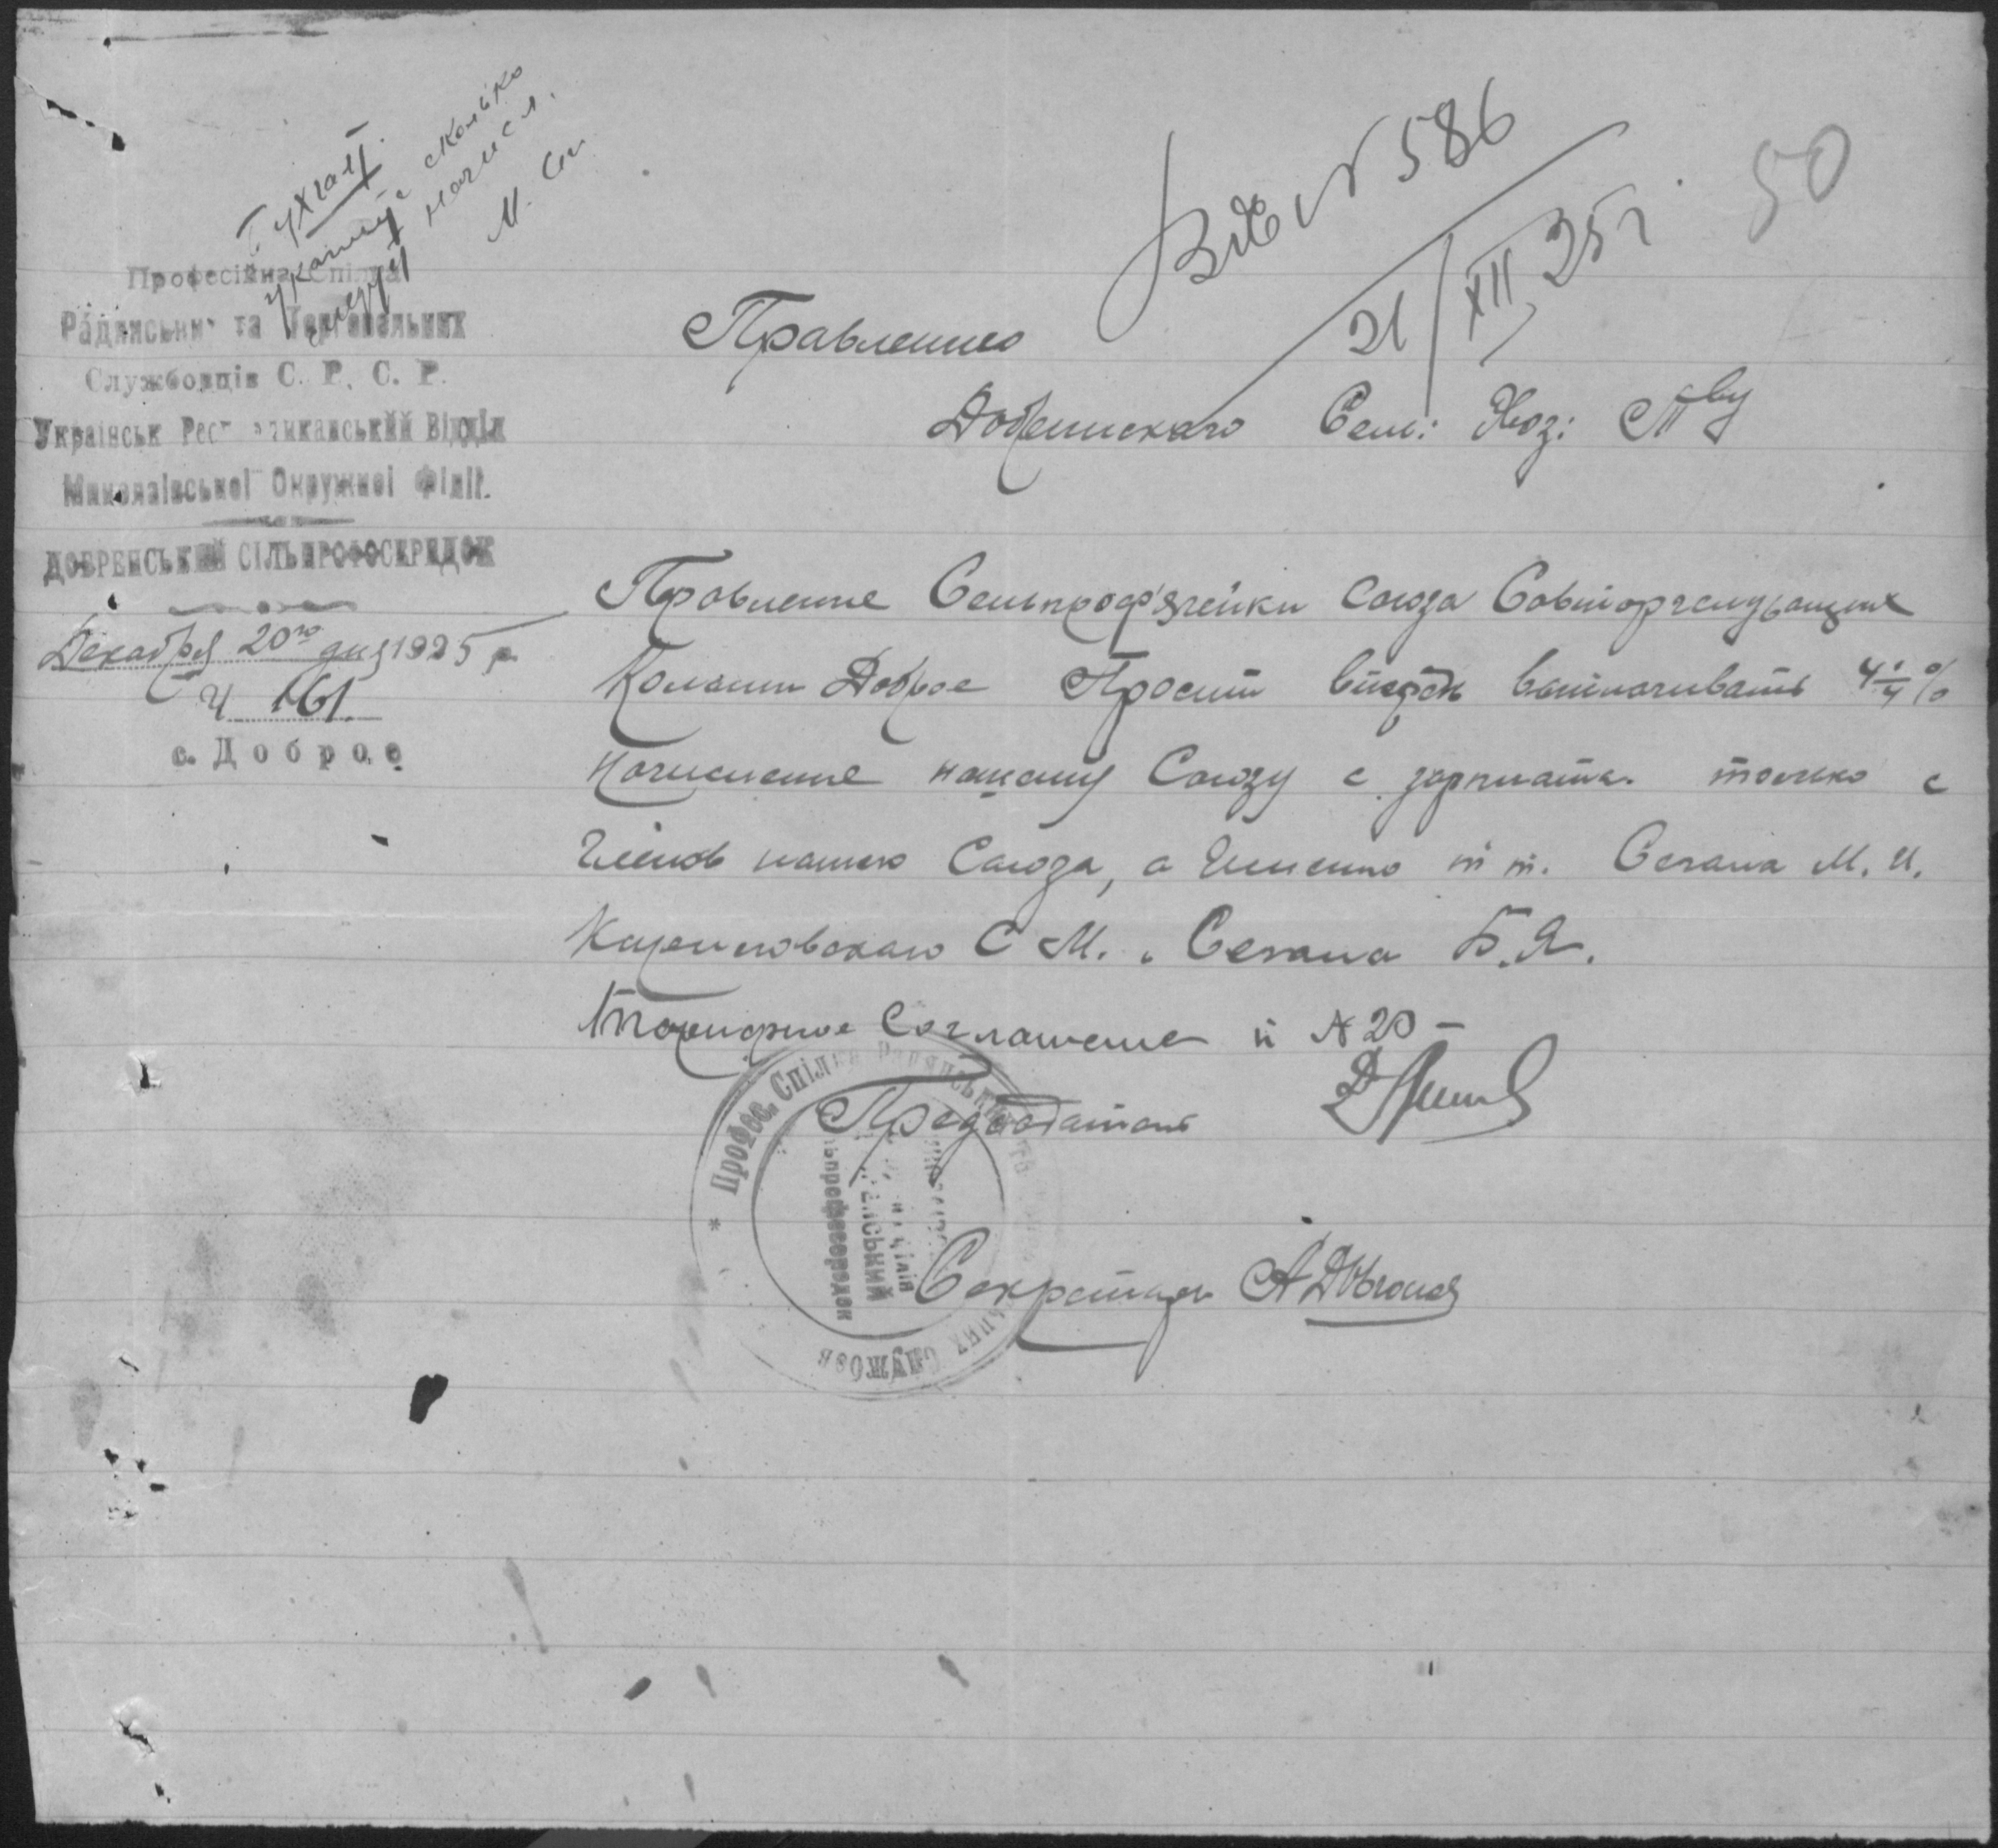 Бухгалт.
укажите сколько
следует начисл.
Професійна Спілка
Радянських та Торговельних
Службовців С. Р. С. Р.
Українськ Респ бликанський Відділ
Миколаївської Окружної Філії.
ДОБРЕНСЬКИЙ СІЛЬПРОФОСЕРЕДОК
Декабря 20го дня 1925 р.
Ч 161.
с. Доброе
Вх № 586
21/XII 25 г.
50
Правлению
Добренскаго Сель: Хоз: Тву
Правление Сельпроф'ячейки Союза Совторгслужащих
Колонии Доброе Просит впредь выплачивать 4 1/4 %
Начисление нашему Союзу с зарплаты только с
Членов нашего Союза, а Именно т т. Сегала М. И.
С М. Сегала Б. Я.
Тарифное Соглашение № 20 –
Председатель
Секретарь
Профес. Спілка Радянських та
Службов